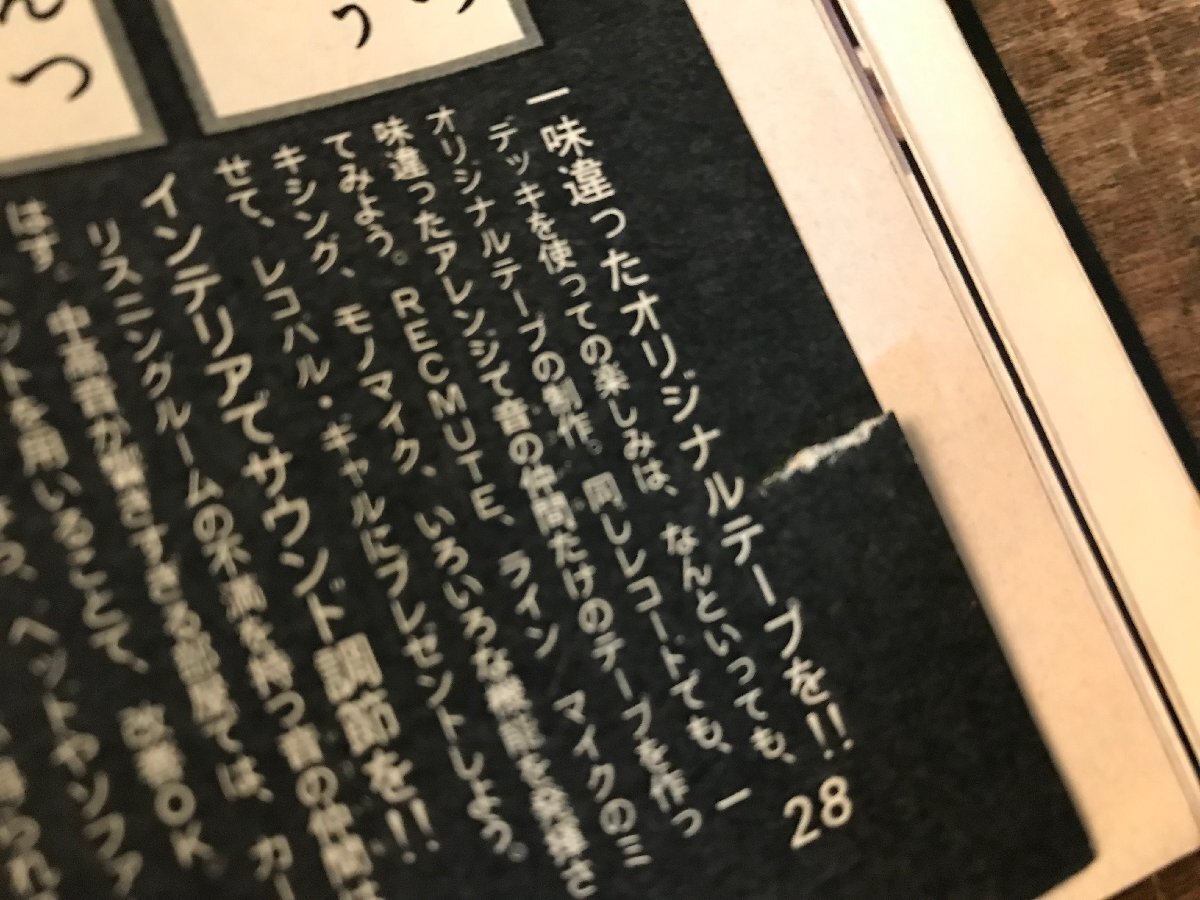 一味違ったオリジナルテープを!! 28
デッキを使っての楽しみは、なんといっても、
オリジナルテープの制作。同じレコードでも、一
味違ったアレンジで音の仲間だけのテープを作っ
てみよう。RECMUTE、ライン マイクのミ
キシング、モノマイク、いろいろな機能を発揮さ
せて、レコパル・ギャルにプレゼントしよう。
インテリアでサウンド調節を!!
リスニングルームの不満を持つ音の仲間は
はず。中高音が響きすぎる部屋では、カー
ットを用いることで、改善OK。
ベッドやソファ
んつ
う